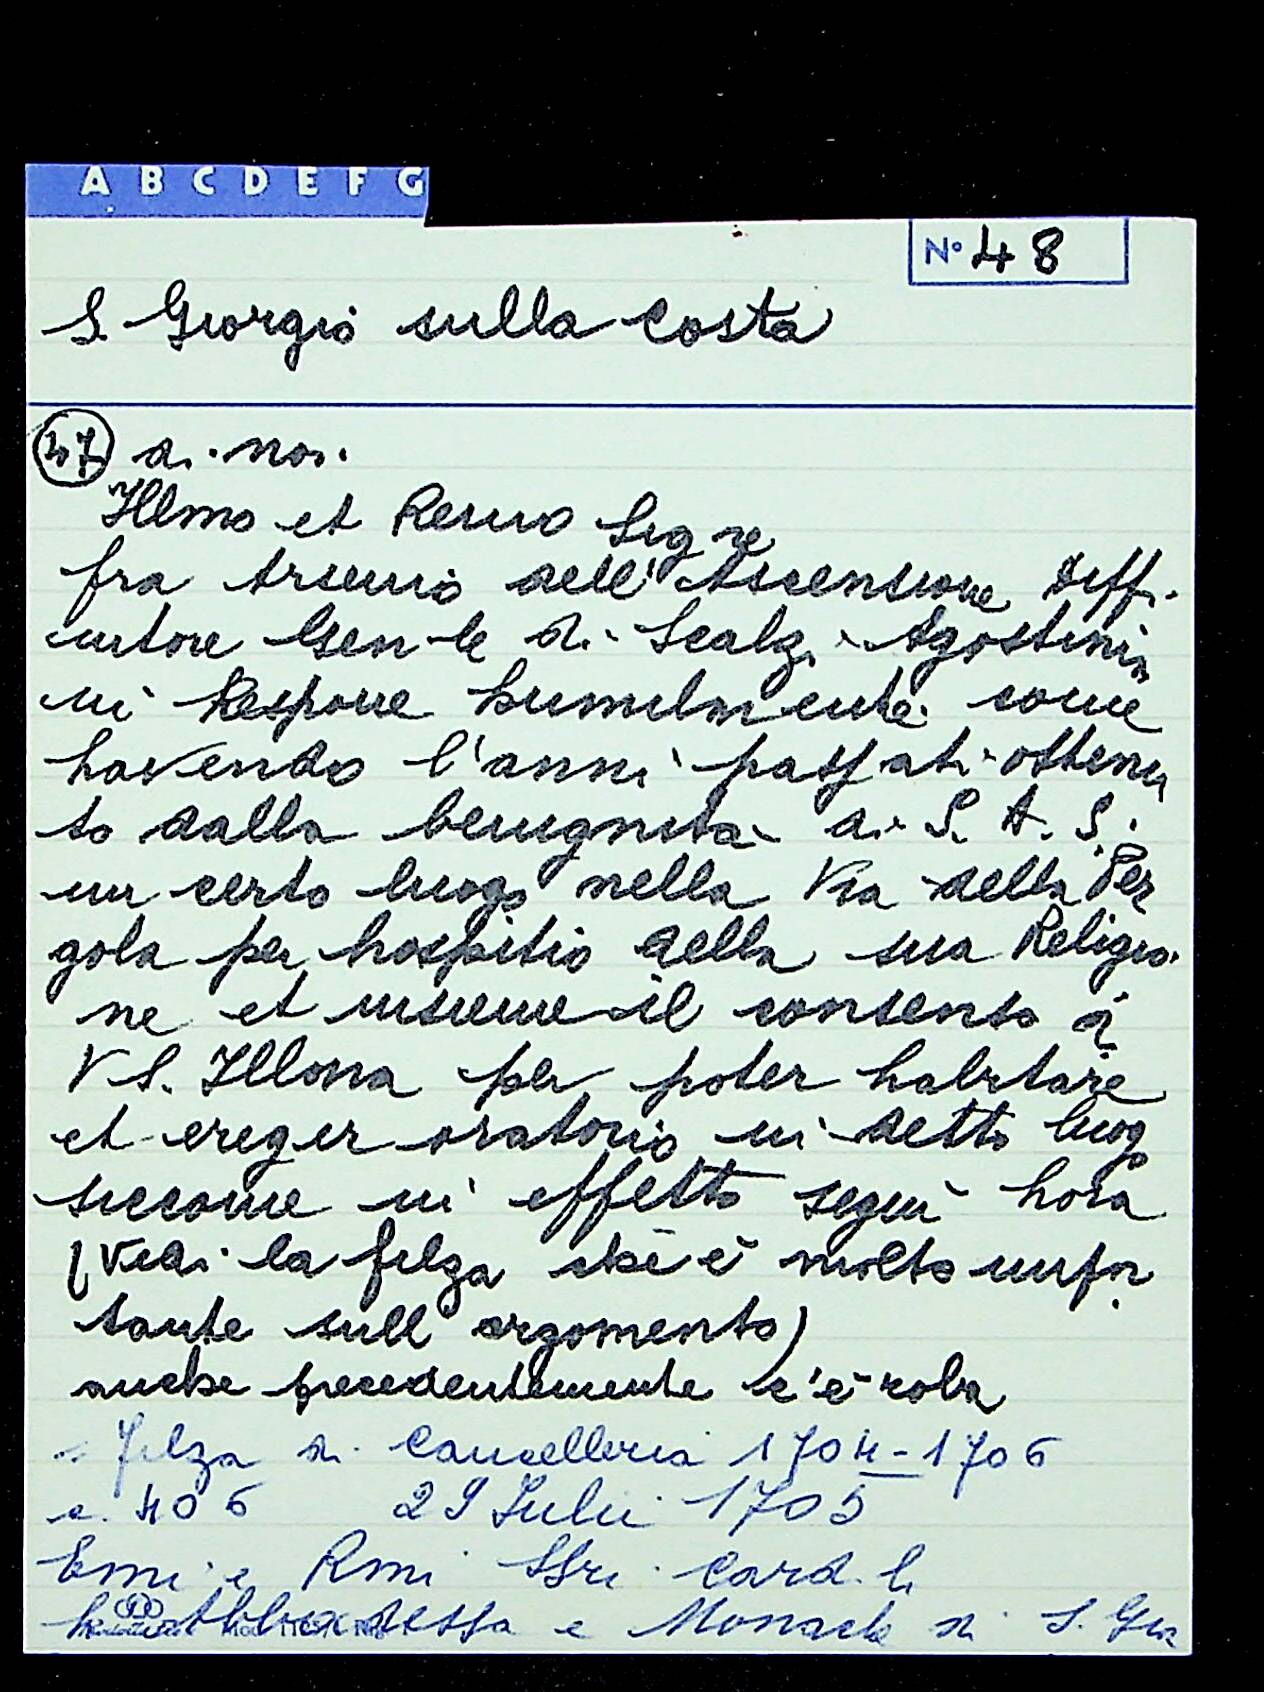 A B C D E F G
N° 48
S. Giorgio sulla Costa
47 di noi.
Illmo et Revmo Sigre
fra Arsenio dell' Ascensione Diffi-
nitore Gen-le di Scalzi Agostinia
ni Respone humilmente come
havendo l'anni passati ottenu
to dalla benignita di S. A. S.
un certo luogo nella Via della Per
gola per hospitio della sua Religio-
ne et insieme il consenso di
V S. Illma per poter habitare
et ereger oratorio in detto luog
siccome in effetto segui hora
(Vedi la filza che è molto impor
tante sull argomento)
anche precedentemente c'è roba
Filza di Cancelleria 1704-1706
c. 406 29 Iulii 1705
Emi e Rmi SSri Card.li
Abbadessa e Monache di S. Gio